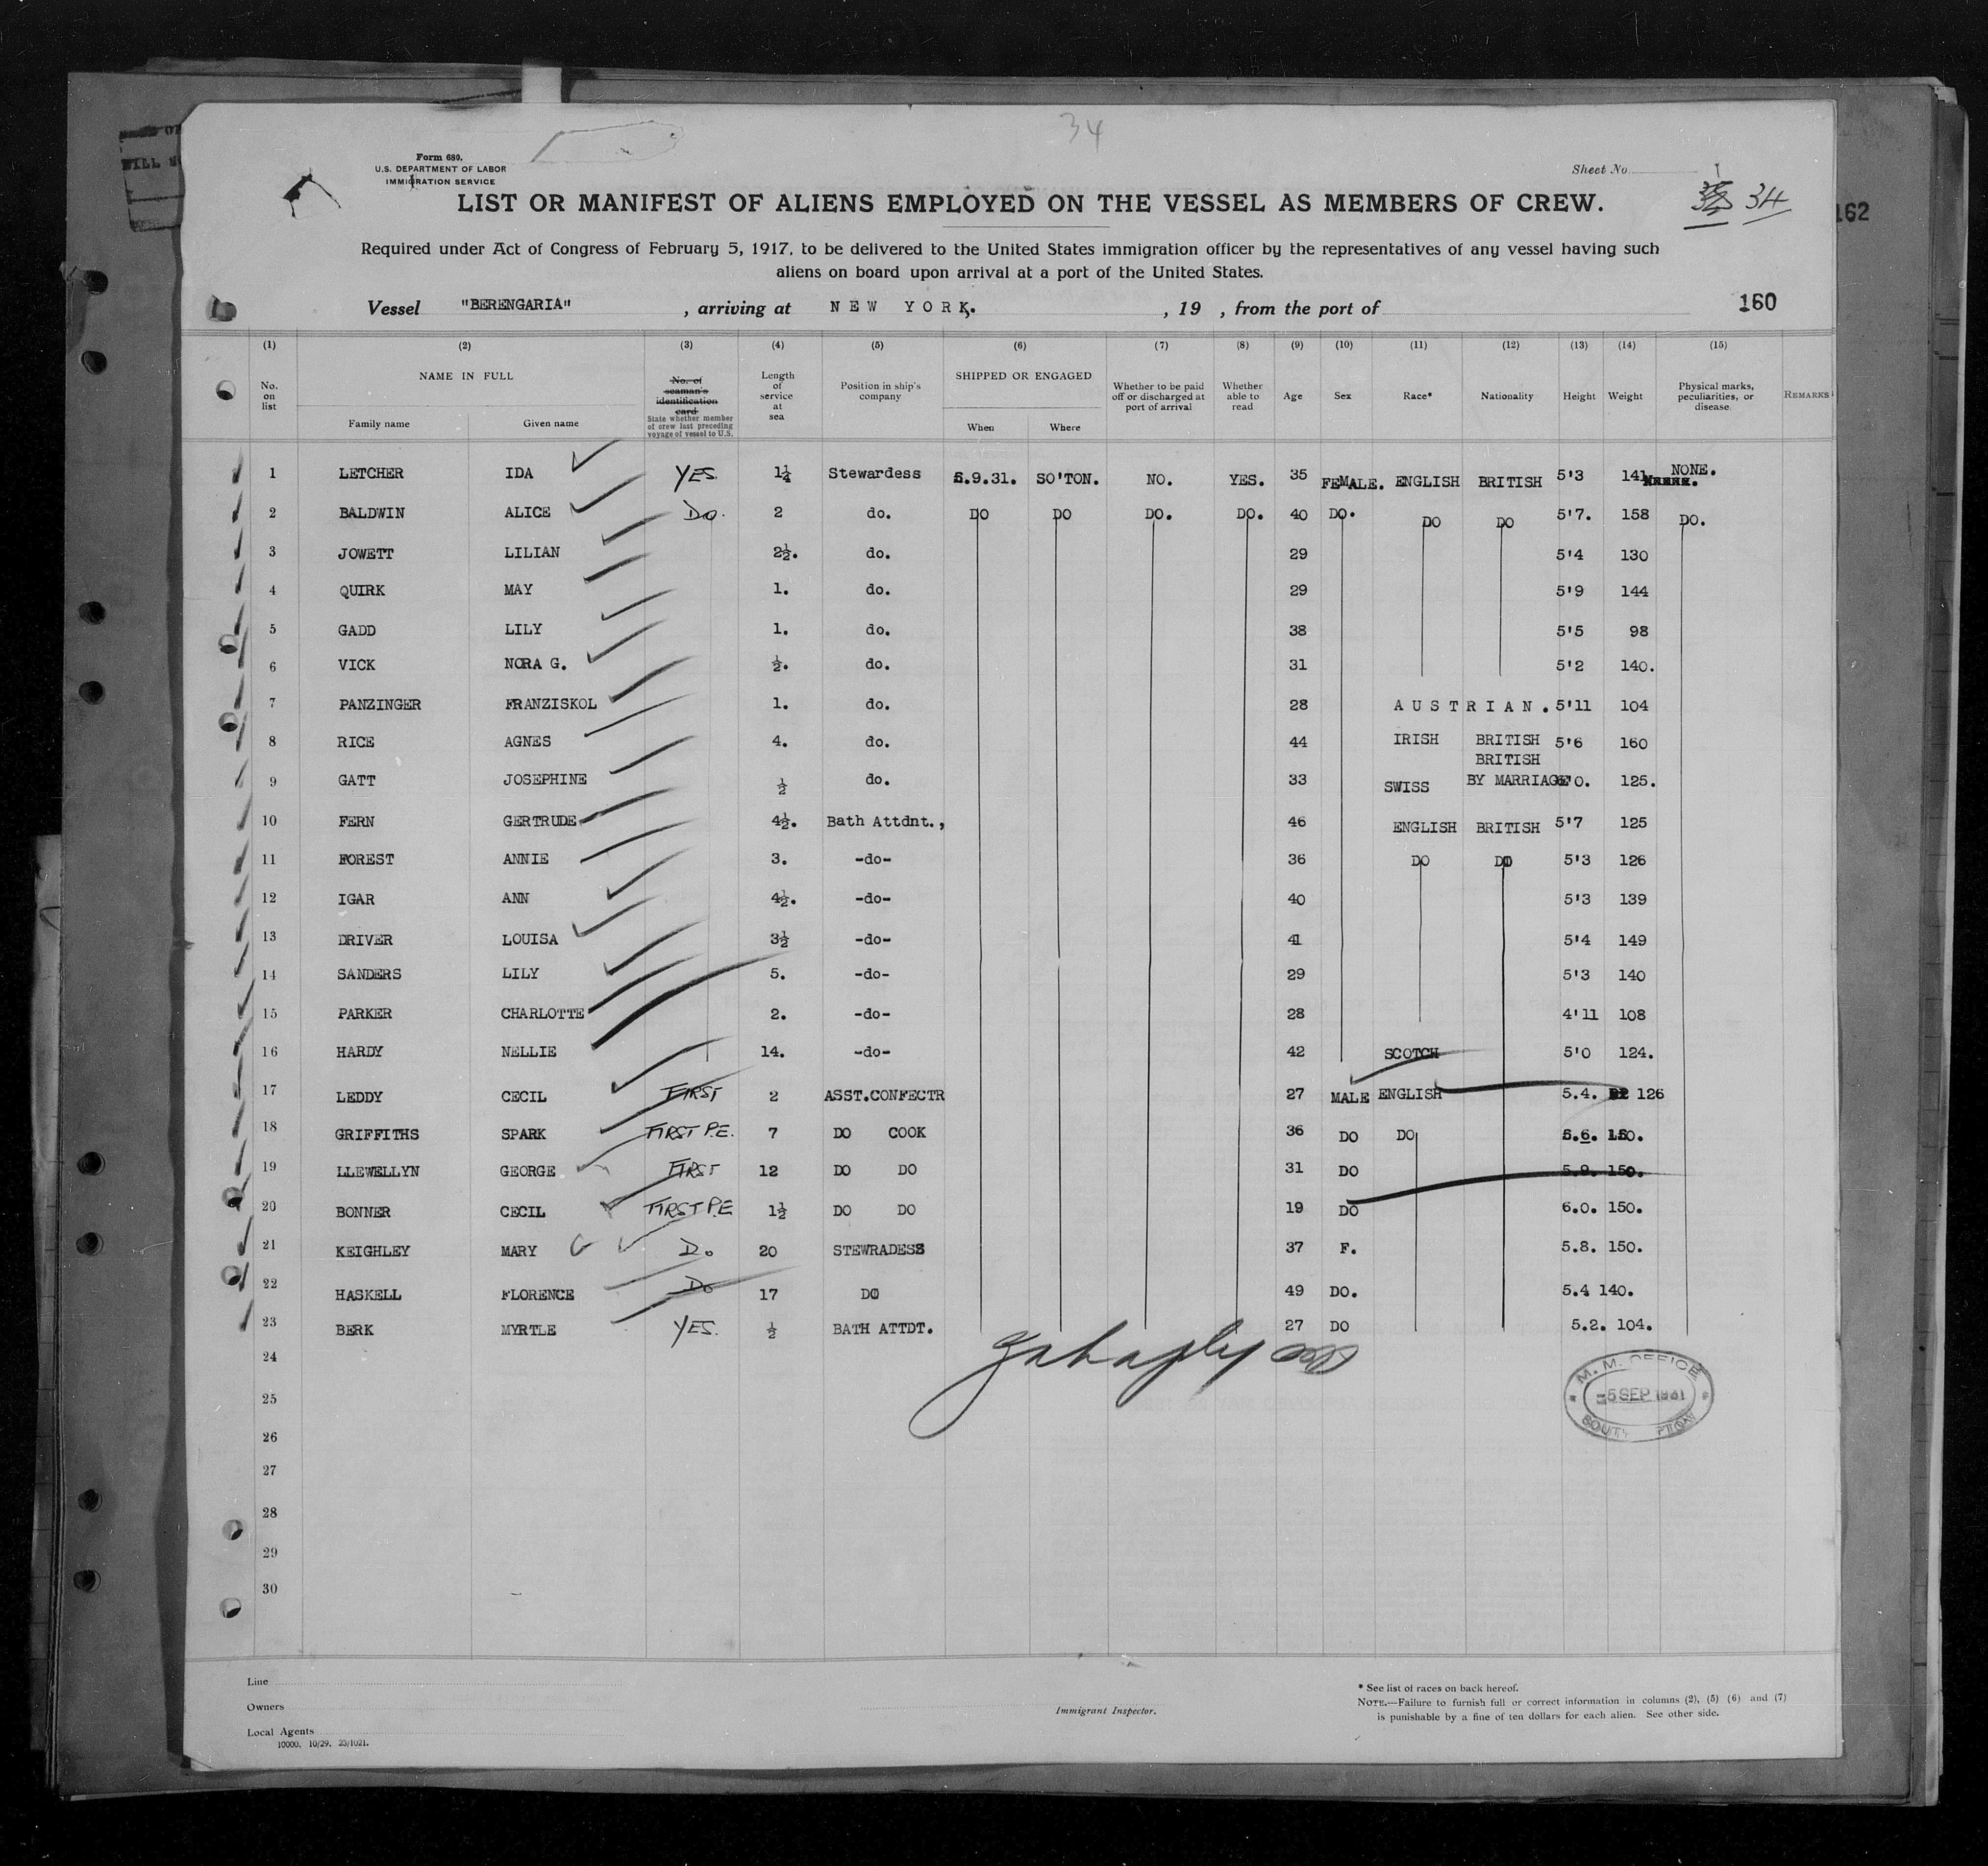 34
Form 680.
U.S. DEPARTMENT OF LABOR
IMMIGRATION SERVICE
Sheet No
34
LIST OR MANIFEST OF ALIENS EMPLOYED ON THE VESSEL AS MEMBERS OF CREW.
162
Required under Act of Congress of February 5, 1917, to be delivered to the United States immigration officer by the representatives of any vessel having such
aliens on board upon arrival at a port of the United States.
Vessel "BERENGARIA" , arriving at NEW YORK. , 19 , from the port of 160
(1) (2) (3) (4) (5) (6) (7) (8) (9) (10) (11) (12) (13) (14) (15)
No. on list NAME IN FULL Family name Given name No. of seaman's identification card State whether member of crew last preceding voyage of vessel to U.S. Length of service at sea Position in ship's company SHIPPED OR ENGAGED When Where Whether to be paid off or discharged at port of arrival Whether able to read Age Sex Race* Nationality Height Weight Physical marks, peculiarities, or disease. REMARKS
1 LETCHER IDA YES. 1¼ Stewardess 5.9.31. SO'TON. NO. YES. 35 FEMALE. ENGLISH BRITISH 5'3 141 NONE.
2 BALDWIN ALICE Do. 2 do. DO DO DO. DO. 40 DO. DO DO 5'7. 158 DO.
3 JOWETT LILIAN 2½. do. 29 5'4 130
4 QUIRK MAY 1. do. 29 5'9 144
5 GADD LILY 1. do. 38 5'5 98
6 VICK NORA G. ½. do. 31 5'2 140.
7 PANZINGER FRANZISKOL 1. do. 28 AUSTRIAN. 5'11 104
8 RICE AGNES 4. do. 44 IRISH BRITISH 5'6 160
9 GATT JOSEPHINE ½ do. 33 SWISS BRITISH BY MARRIAGE 125.
10 FERN GERTRUDE 4½. Bath Attdnt., 46 ENGLISH BRITISH 5'7 125
11 FOREST ANNIE 3. -do- 36 DO DO 5'3 126
12 IGAR ANN 4½. -do- 40 5'3 139
13 DRIVER LOUISA 3½ -do- 41 5'4 149
14 SANDERS LILY 5. -do- 29 5'3 140
15 PARKER CHARLOTTE 2. -do- 28 4'11 108
16 HARDY NELLIE 14. -do- 42 SCOTCH 5'0 124.
17 LEDDY CECIL FIRST 2 ASST.CONFECTR 27 MALE ENGLISH 5.4. 126
18 GRIFFITHS SPARK FIRST P.E. 7 DO COOK 36 DO DO 5.6. 150.
19 LLEWELLYN GEORGE FIRST 12 DO DO 31 DO 5.9. 150.
20 BONNER CECIL FIRST P.E 1½ DO DO 19 DO 6.0. 150.
21 KEIGHLEY MARY Do 20 STEWRADESS 37 F. 5.8. 150.
22 HASKELL FLORENCE Do 17 DO 49 DO. 5.4 140.
23 BERK MYRTLE YES. ½ BATH ATTDT. 27 DO 5.2. 104.
24
25
26
27
28
29
30
M. M. OFFICE
-5 SEP 1931
Line
Owners
Local Agents
10000. 10/29. 23/1021.
Immigrant Inspector.
* See list of races on back hereof.
NOTE.—Failure to furnish full or correct information in columns (2), (5) (6) and (7)
is punishable by a fine of ten dollars for each alien. See other side.